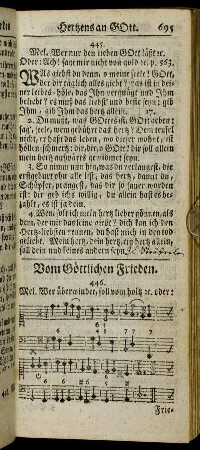 Hertzens an GOtt. 695
445.
Mel. Wer nur den lieben GOtt läßt ꝛc.
Oder: Ach! sage mir nicht von gold ꝛc. p. 563.
Was giebst du denn, o meine seele! GOtt,
der dir täglich alles giebt? was ist in dei-
ner leibes-höle, das Ihn vergnügt und Ihm
beliebt? es muß das liebst' und beste seyn: gib
Ihm, gib Ihm das hertz allein.
2. Du must, was GOttes ist, GOtt geben:
sag', seele, wem gebührt das hertz? Dem teufel
nicht, er haßt das leben, wo dieser wohnt, ist
höllen-schmertz: dir, dir, o GOtt! dir soll allein
mein hertz aufwärts gewidmet seyn.
3. So nimm nun hin, was du verlangest, die
erstgeburt ohn alle list, das hertz, damit du,
Schöpfer, prangest, das dir so sauer worden
ist: dir geb ichs willig, du allein hast es be-
zahlt, es ist ja dein.
4. Wem solt ich mein hertz lieber gönnen, als
dem, der mir das seine giebt? dich kan ich den
Hertz-liebsten nennen, du hast mich in den tod
geliebt. Mein hertz, dein hertz, ein hertz allein,
soll dein und keines andern seyn.
Vom Göttlichen Frieden.
446.
Mel. Wer überwindet, soll vom holtz ꝛc. oder:
Frie-